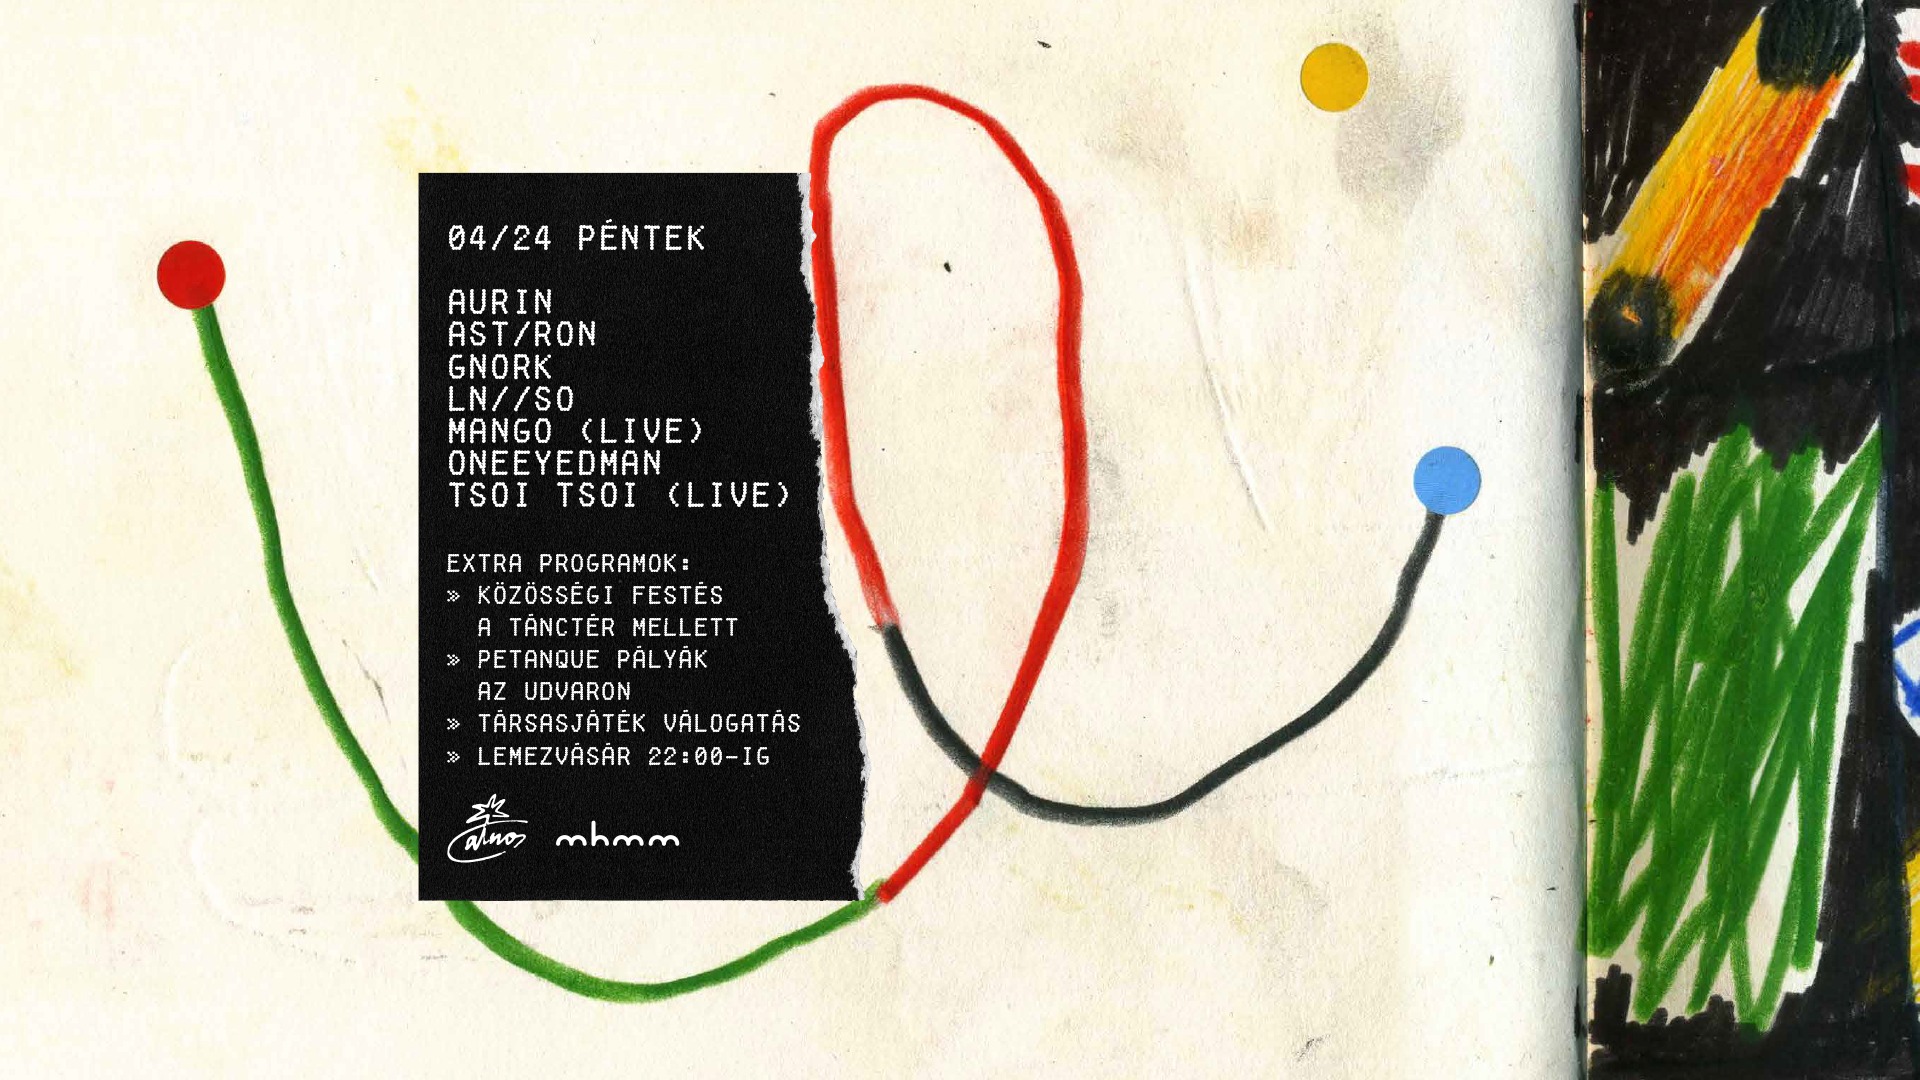 04/24 PÉNTEK
AURIN
AST/RON
GNORK
LN//SO
MANGO (LIVE)
ONEEYEDMAN
TSOI TSOI (LIVE)
EXTRA PROGRAMOK:
» KÖZÖSSÉGI FESTÉS
A TÁNCTÉR MELLETT
» PETANQUE PÁLYÁK
AZ UDVARON
» TÁRSASJÁTÉK VÁLOGATÁS
» LEMEZVÁSÁR 22:00-IG
mhmm